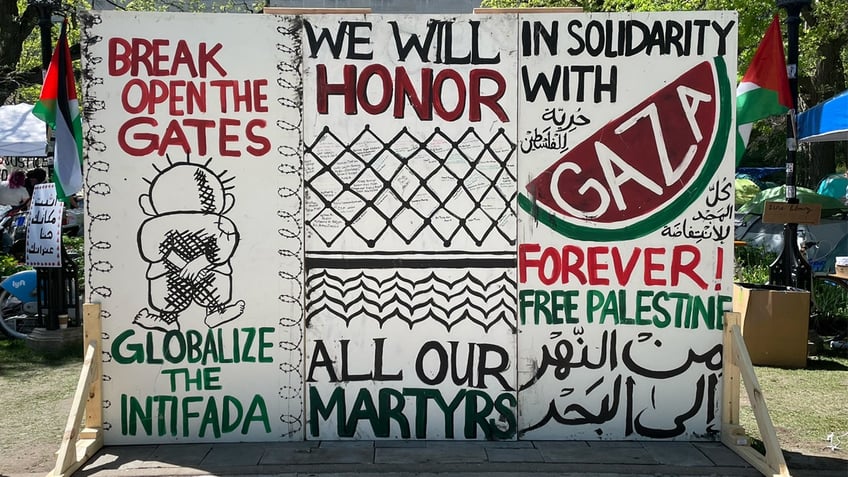 BREAK
OPEN THE
GATES
GLOBALIZE
THE
INTIFADA
WE WILL
HONOR
ALL OUR
MARTYRS
IN SOLIDARITY
WITH
حريّة
للفلسطين
GAZA
كلّ
المجد
للانتفاضة
FOREVER!
FREE PALESTINE
من النّهر
إلى البحر
lyft